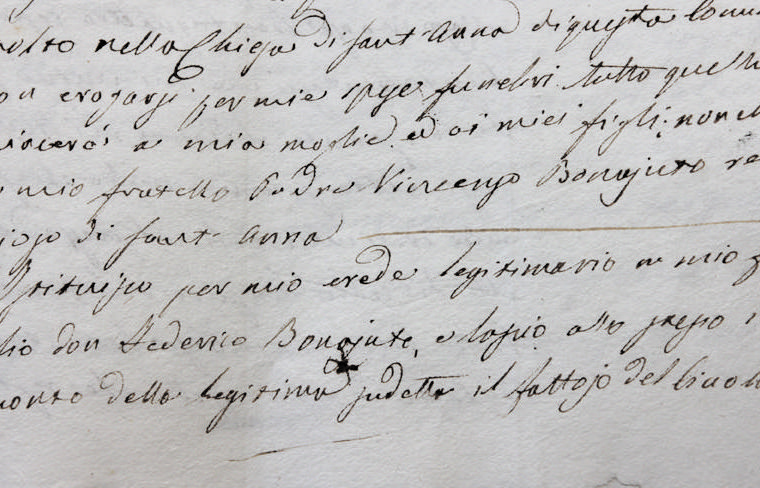 polto nella Chiesa di Sant Anna di questa Comu
on erogarsi per mie spese funebri tutto quello
piacerà a mia moglie ed ai miei figli, nonch
mio fratello Padre Vincenzo Bonajuto re
gioso di Sant Anna
Istituisco per mio erede legittimario il mio
lio don Federico Bonajuto, e lascio allo stesso i
conto della legitima sudetta il fattojo del